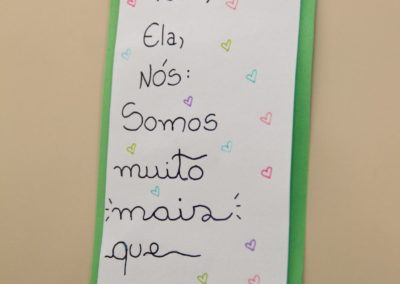 Ela,
NÓS:
Somos
muito
mais
que